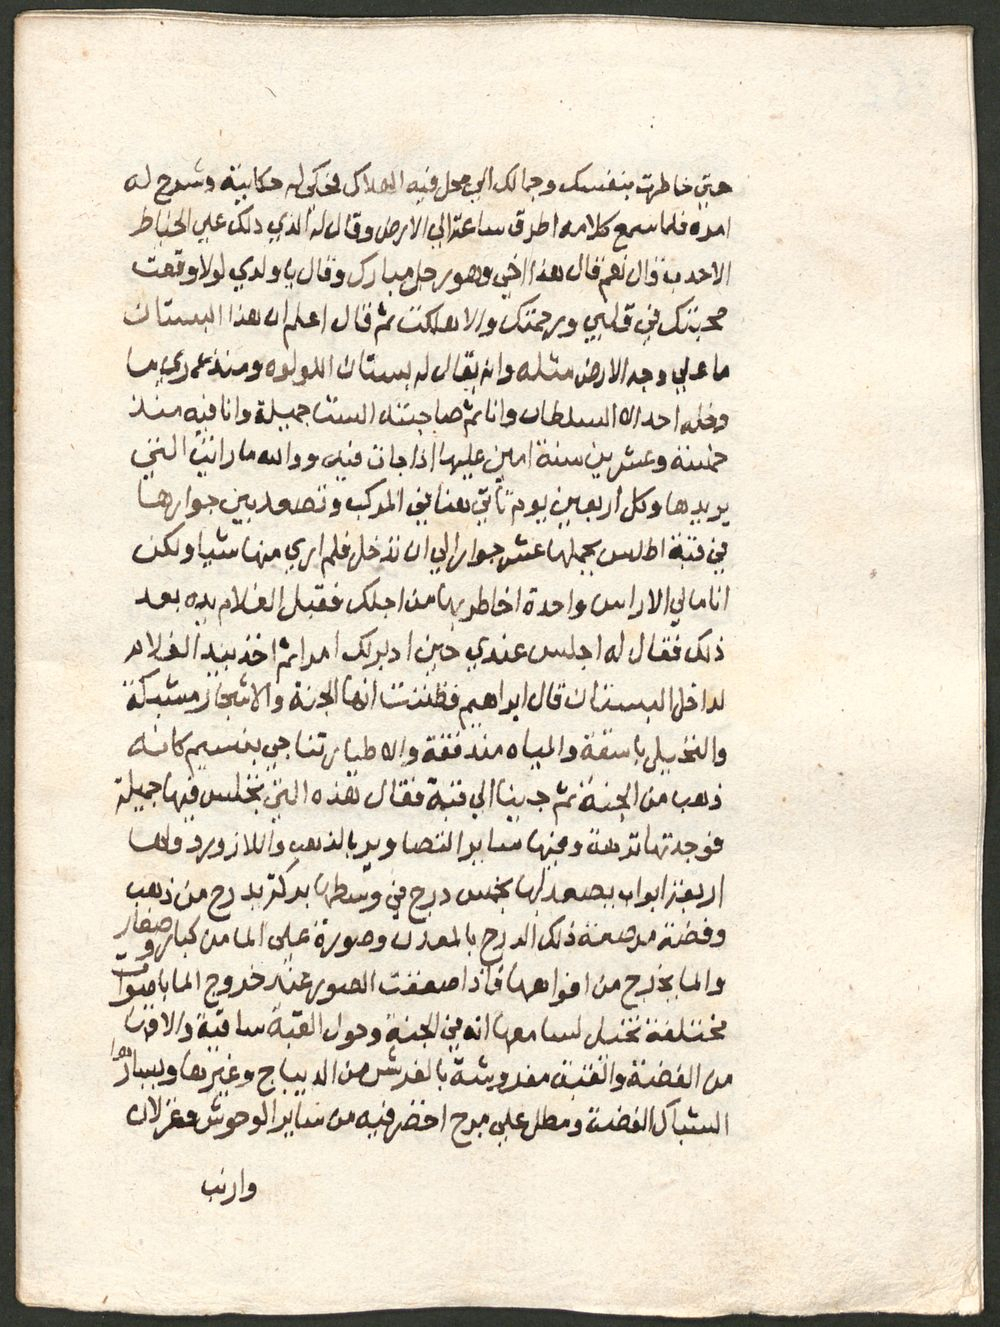 حتي خاطرت بنفسك وجمالك الي محل فيه الهلاك فحكي له حكايته وشرح له
امره فلما سمع كلامه اطرق ساعة الي الارض وقال له الذي دلك علي الخياط
الاحدب قال نعم قال هذا اخي وهو رجل مبارك وقال يا ولدي لولا وقعت
محبتك في قلبي ورحمتك والا هلكت ثم قال اعلم ان هذا البستان
ما علي وجه الارض مثله وانه يقال له بستان اللولوه ومنذ عمري ما
دخله احد الا السلطان وانا ثم صاحبته الست جميلة وانا فيه منذ
خمسة وعشرين سنة امين عليها اذا جات فيه ووالله ما رايت التي
يريدها وكل اربعين يوم تاتي هنا في المركب وتصعد بين جوارها
في قبة اطلس يحملها عشر جوار الي ان تدخل فلم اري منها شيا ولكن
انا مالي الا راس واحدة اخاطر بها من اجلك فقبل الغلام يده بعد
ذلك فقال له اجلس عندي حين ادبر لك امرا ثم اخذ بيد الغلام
لداخل البستان قال ابراهيم فظننت انها الجنة والاشجار مشبكة
والنخيل باسقة والمياه مندفقة والاطيار تناجي بنسيم كانه
ذهب من الجنة ثم جينا الي قبة فقال هذه التي تجلس فيها جميلة
فوجدتها نزهة وفيها ساير التصاوير بالذهب واللازورد ولها
اربعة ابواب يصعد لها بخمس درج في وسطها بركة بدرج من ذهب
وفضة مرصعة ذلك الدرج بالمعدن وصورة علي الما من كبار وصغار
والما يخرج من افواهها فاذا صعقت الصور عند خروج الما باصوات
مختلفة تخيل لسامعها انه في الجنة وحول القبة ساقية والاونا
من الفضة والقبة مفروشة بالفرش من الديباج وغيرها ويسارها
الشباك الفضة ومطل علي مرج اخضر فيه من ساير الوحوش وغزلان
وارنب